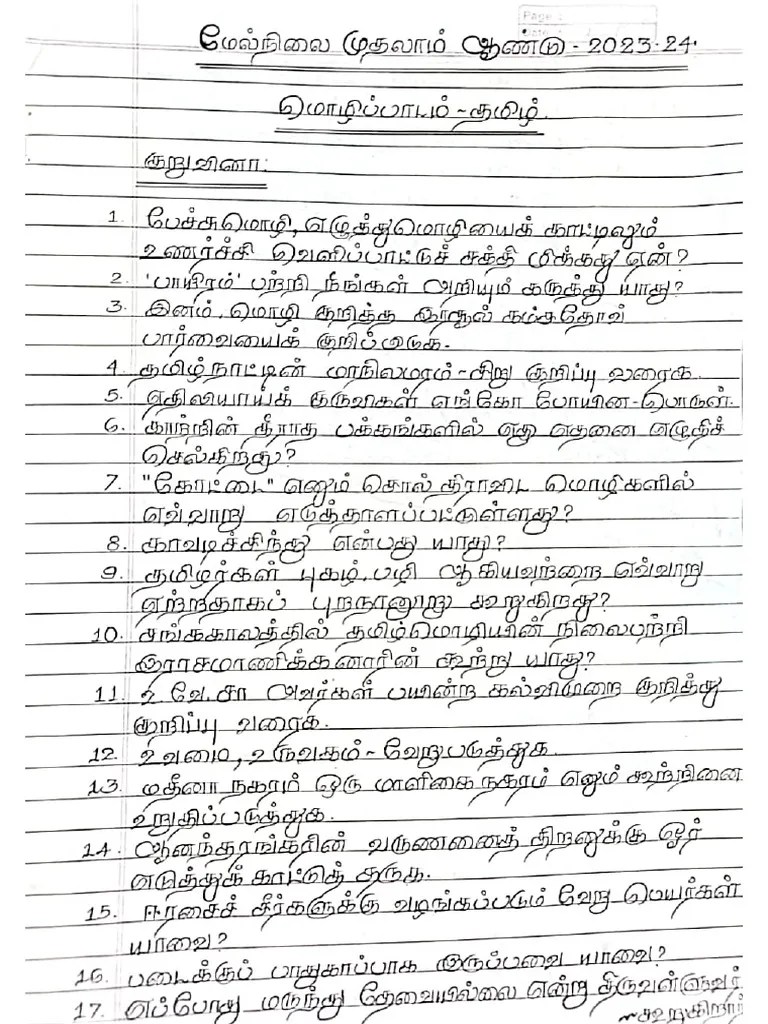 PAGE :
மேல்நிலை முதலாம் ஆண்டு - 2023-24.
மொழிப்பாடம் - தமிழ்.
குறுவினா:
1. பேச்சுமொழி, எழுத்துமொழியைக் காட்டிலும்
உணர்ச்சி வெளிப்பாட்டுச் சக்தி மிக்கது ஏன்?
2. 'பாயிரம்' பற்றி நீங்கள் அறியும் கருத்து யாது?
3. இனம், மொழி குறித்த இரசூல் கம்சதோவ்
பார்வையைக் குறிப்பிடுக.
4. தமிழ்நாட்டின் மாநிலமரம் - சிறு குறிப்பு வரைக.
5. ஏதிலியாய்க் குருவிகள் எங்கோ போயின - பொருள்.
6. காற்றின் தீராத பக்கங்களில் எது எதனை எழுதிச்
செல்கிறது?
7. "கோட்டை" எனும் சொல் திராவிட மொழிகளில்
எவ்வாறு எடுத்தாளப்பட்டுள்ளது?
8. காவடிச்சிந்து என்பது யாது?
9. தமிழர்கள் புகழ், பழி ஆகியவற்றை எவ்வாறு
ஏற்றதாகப் புறநானூறு கூறுகிறது?
10. சங்ககாலத்தில் தமிழ்மொழியின் நிலைபற்றி
இராசமாணிக்கனாரின் கூற்று யாது?
11. உ.வே.சா அவர்கள் பயின்ற கல்விமுறை குறித்து
குறிப்பு வரைக.
12. உவமை, உருவகம் - வேறுபடுத்துக.
13. மதீனா நகரம் ஒரு மாளிகை நகரம் எனும் கூற்றினை
உறுதிப்படுத்துக.
14. ஆனந்தரங்கரின் வருணனைத் திறனுக்கு ஓர்
எடுத்துக் காட்டுத் தருக.
15. ஈரசைச் சீர்களுக்கு வழங்கப்படும் வேறு பெயர்கள்
யாவை?
16. படைக்குப் பாதுகாப்பாக இருப்பவை யாவை?
17. எப்போது மருந்து தேவையில்லை என்று திருவள்ளுவர்
கூறுகிறார்